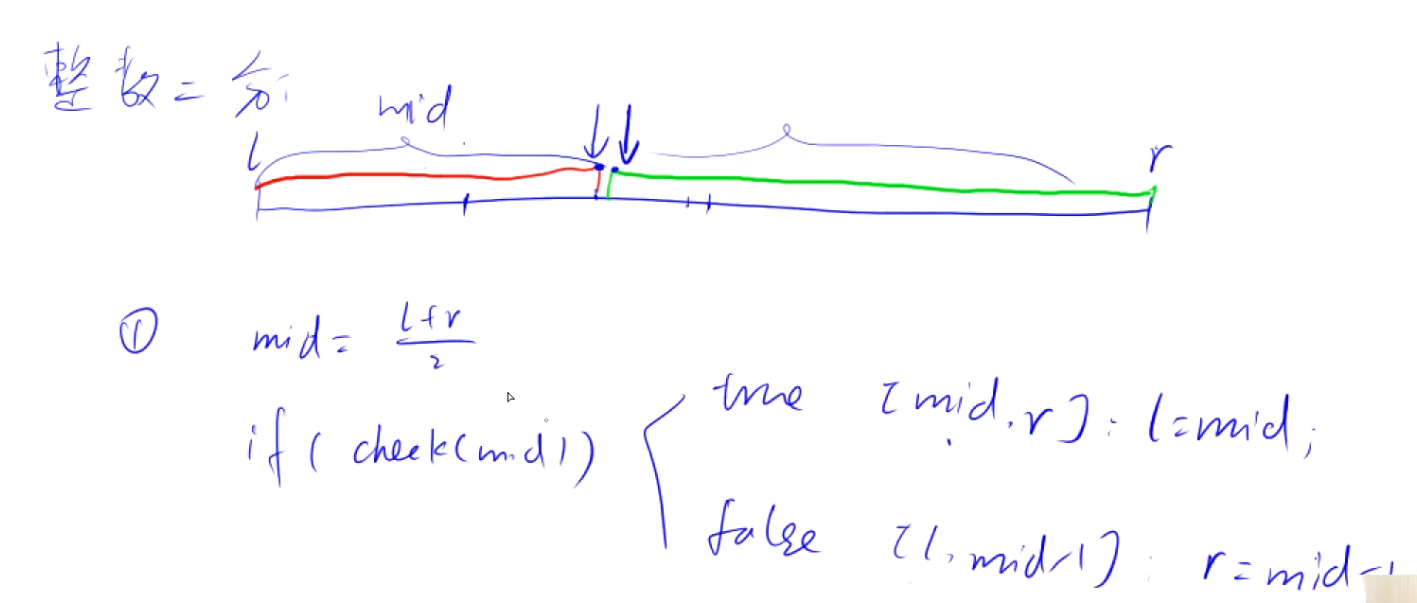 整数二分
mid
l
r
① mid = l+r
2
if ( check(mid) )
true [mid, r] : l=mid;
false [l, mid-1] : r=mid-1